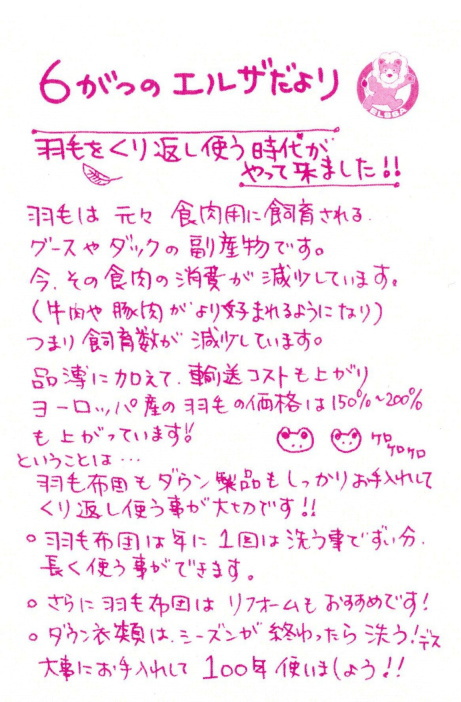 6がつのエルザだより
羽毛をくり返し使う時代が
やって来ました!!
羽毛は 元々 食肉用に飼育される
グースやダックの副産物です。
今、その食肉の消費が減少しています。
(牛肉や豚肉がより好まれるようになり)
つまり飼育数が減少しています。
品薄に加えて、輸送コストも上がり
ヨーロッパ産の羽毛の価格は150%~200%
も上がっています!!
ケロ
ケロケロ
ということは…
羽毛布団もダウン製品もしっかりお手入れして
くり返し使う事が大切です!!
○羽毛布団は年に1回は洗う事でずい分、
長く使う事ができます。
○さらに羽毛布団はリフォームもおすすめです!
○ダウン衣類は、シーズンが終わったら洗う!デス
大事にお手入れして100年使いましょう!!